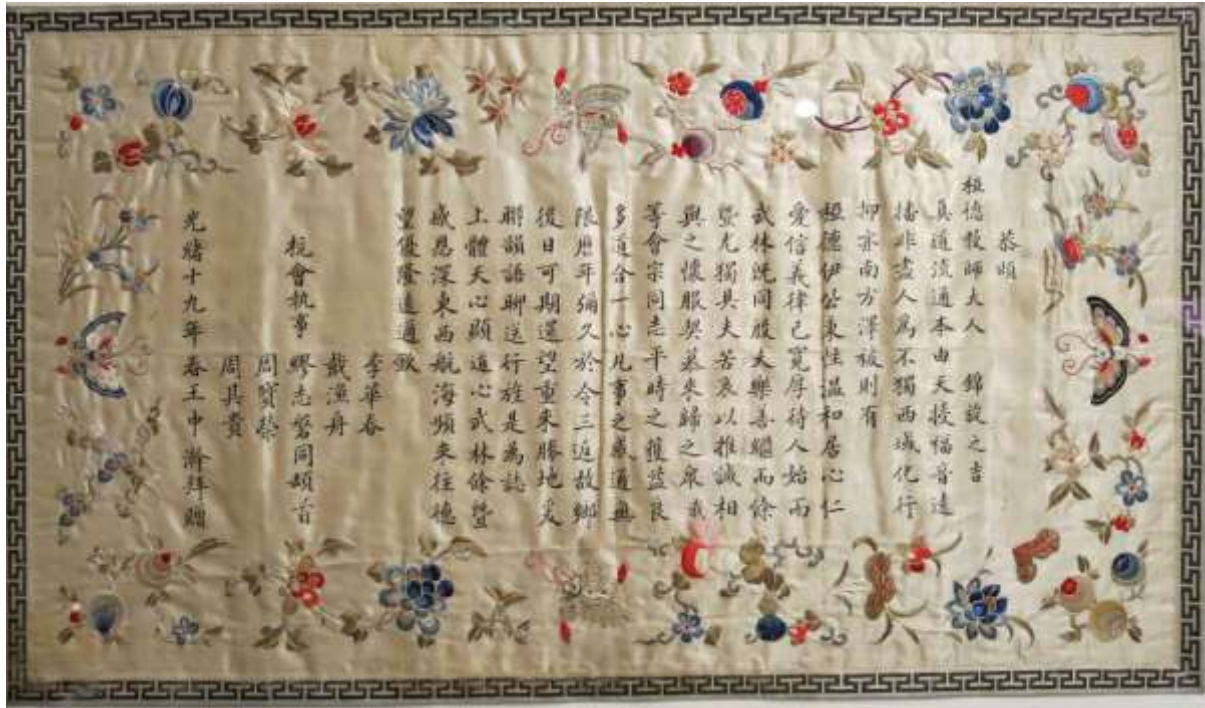 恭頌
祖德牧師大人 錦旋之吉
真道流通本由天授福音遠
播非盡人為不獨西域化行
抑亦南方澤被則有
祖德伊公秉性溫和居心仁
愛信義律己寬厚待人始而
武林洗同股大樂善繼而餘
暨尤獨具夫苦衷以推誠相
與之懷服契慕來歸之眾我
等會宗同志平時之獲益良
多道合一心凡事之感通無
限歷年彌久於今三返故鄉
後日可期還望重來勝地爰
聯韻語聊送行旌是為誌
上體天心顯道心武林餘暨
感恩深東西航海頻來往德
望優隆遠通歌
李華春
戴漁舟
杭會執事 繆志磐同頓首
周寶榮
周其貴
光緒十九年春王中澣拜贈